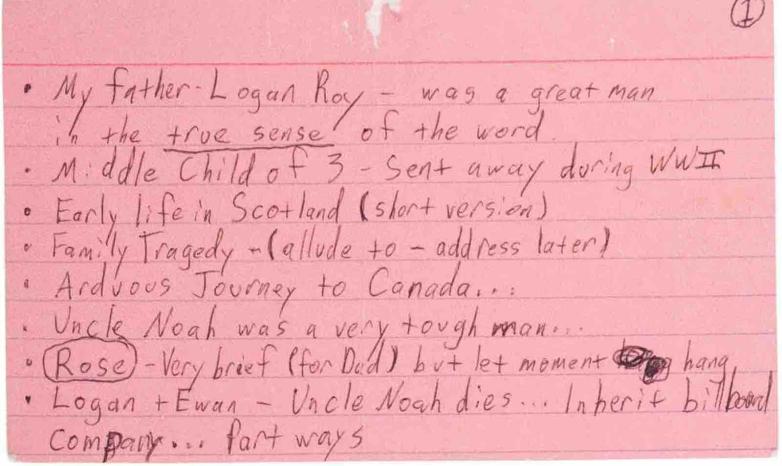 1
• My father - Logan Roy - was a great man
in the true sense of the word.
• Middle Child of 3 - Sent away during WWII
• Early life in Scotland (short version)
• Family Tragedy - (allude to - address later)
• Arduous Journey to Canada...
• Uncle Noah was a very tough man...
• Rose - Very brief (for Dad) but let moment hang
• Logan + Ewan - Uncle Noah dies... Inherit billboard
company... Part ways